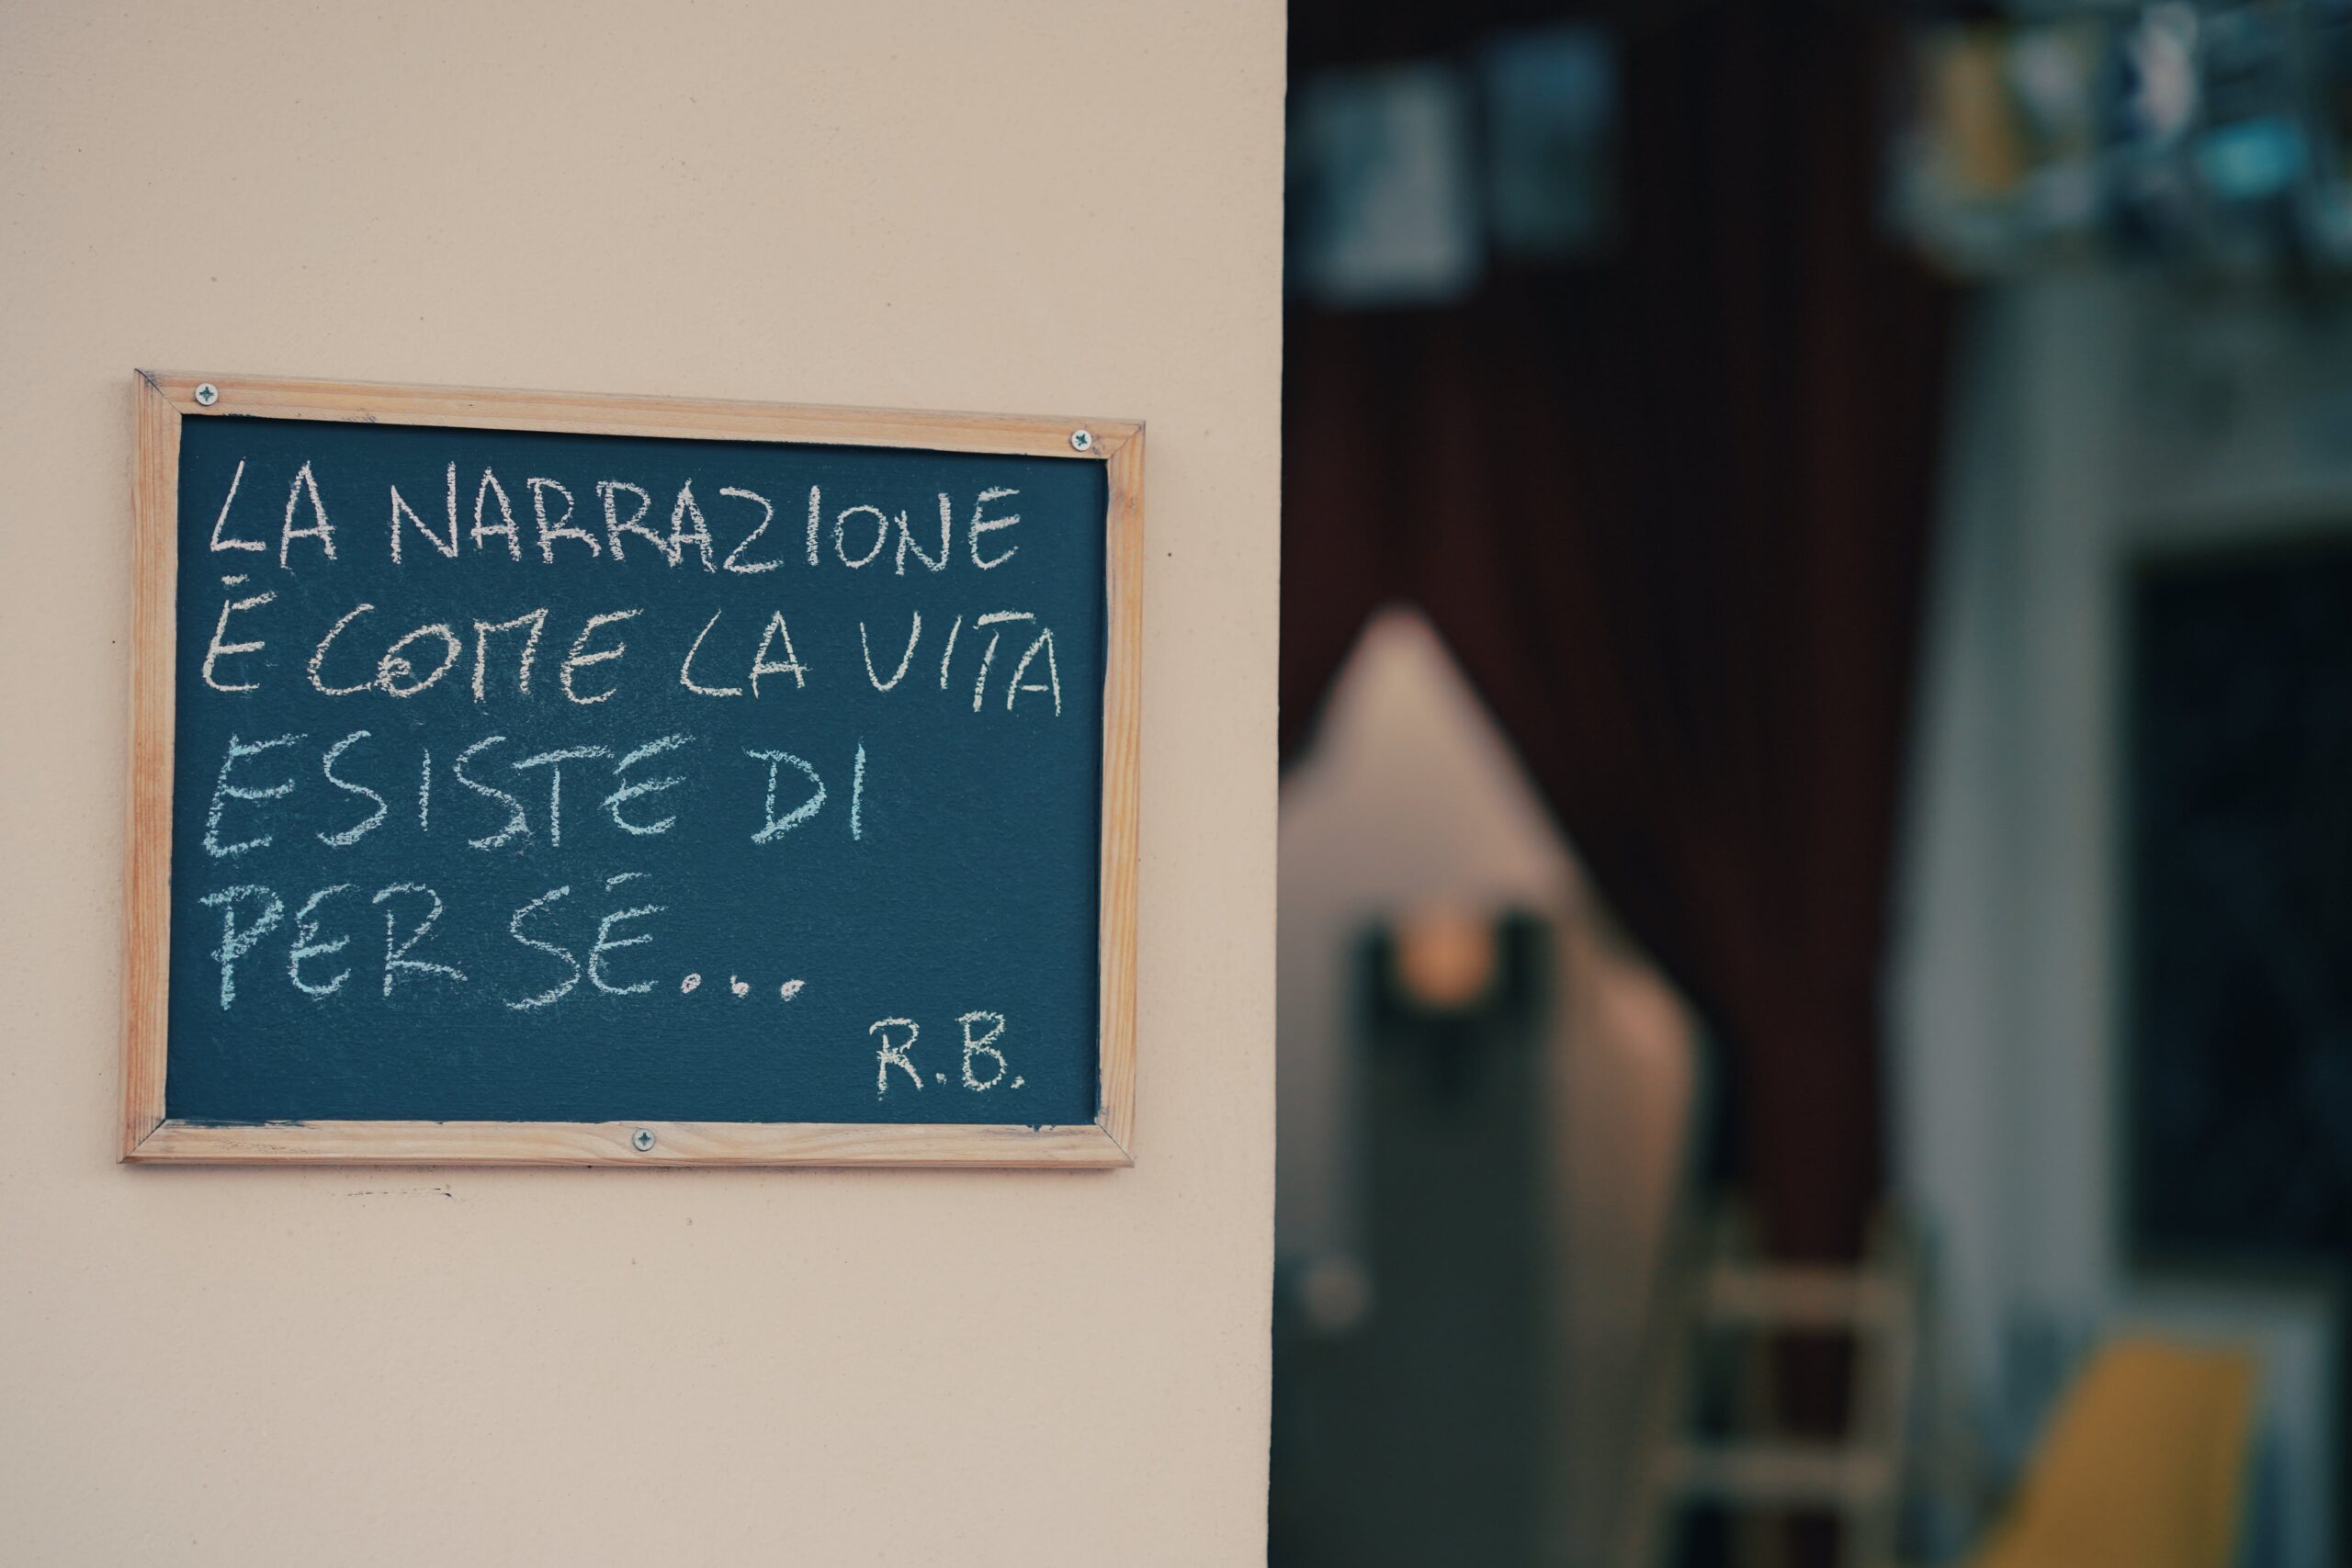 LA NARRAZIONE
È COME LA VITA
ESISTE DI
PER SÉ...
R.B.